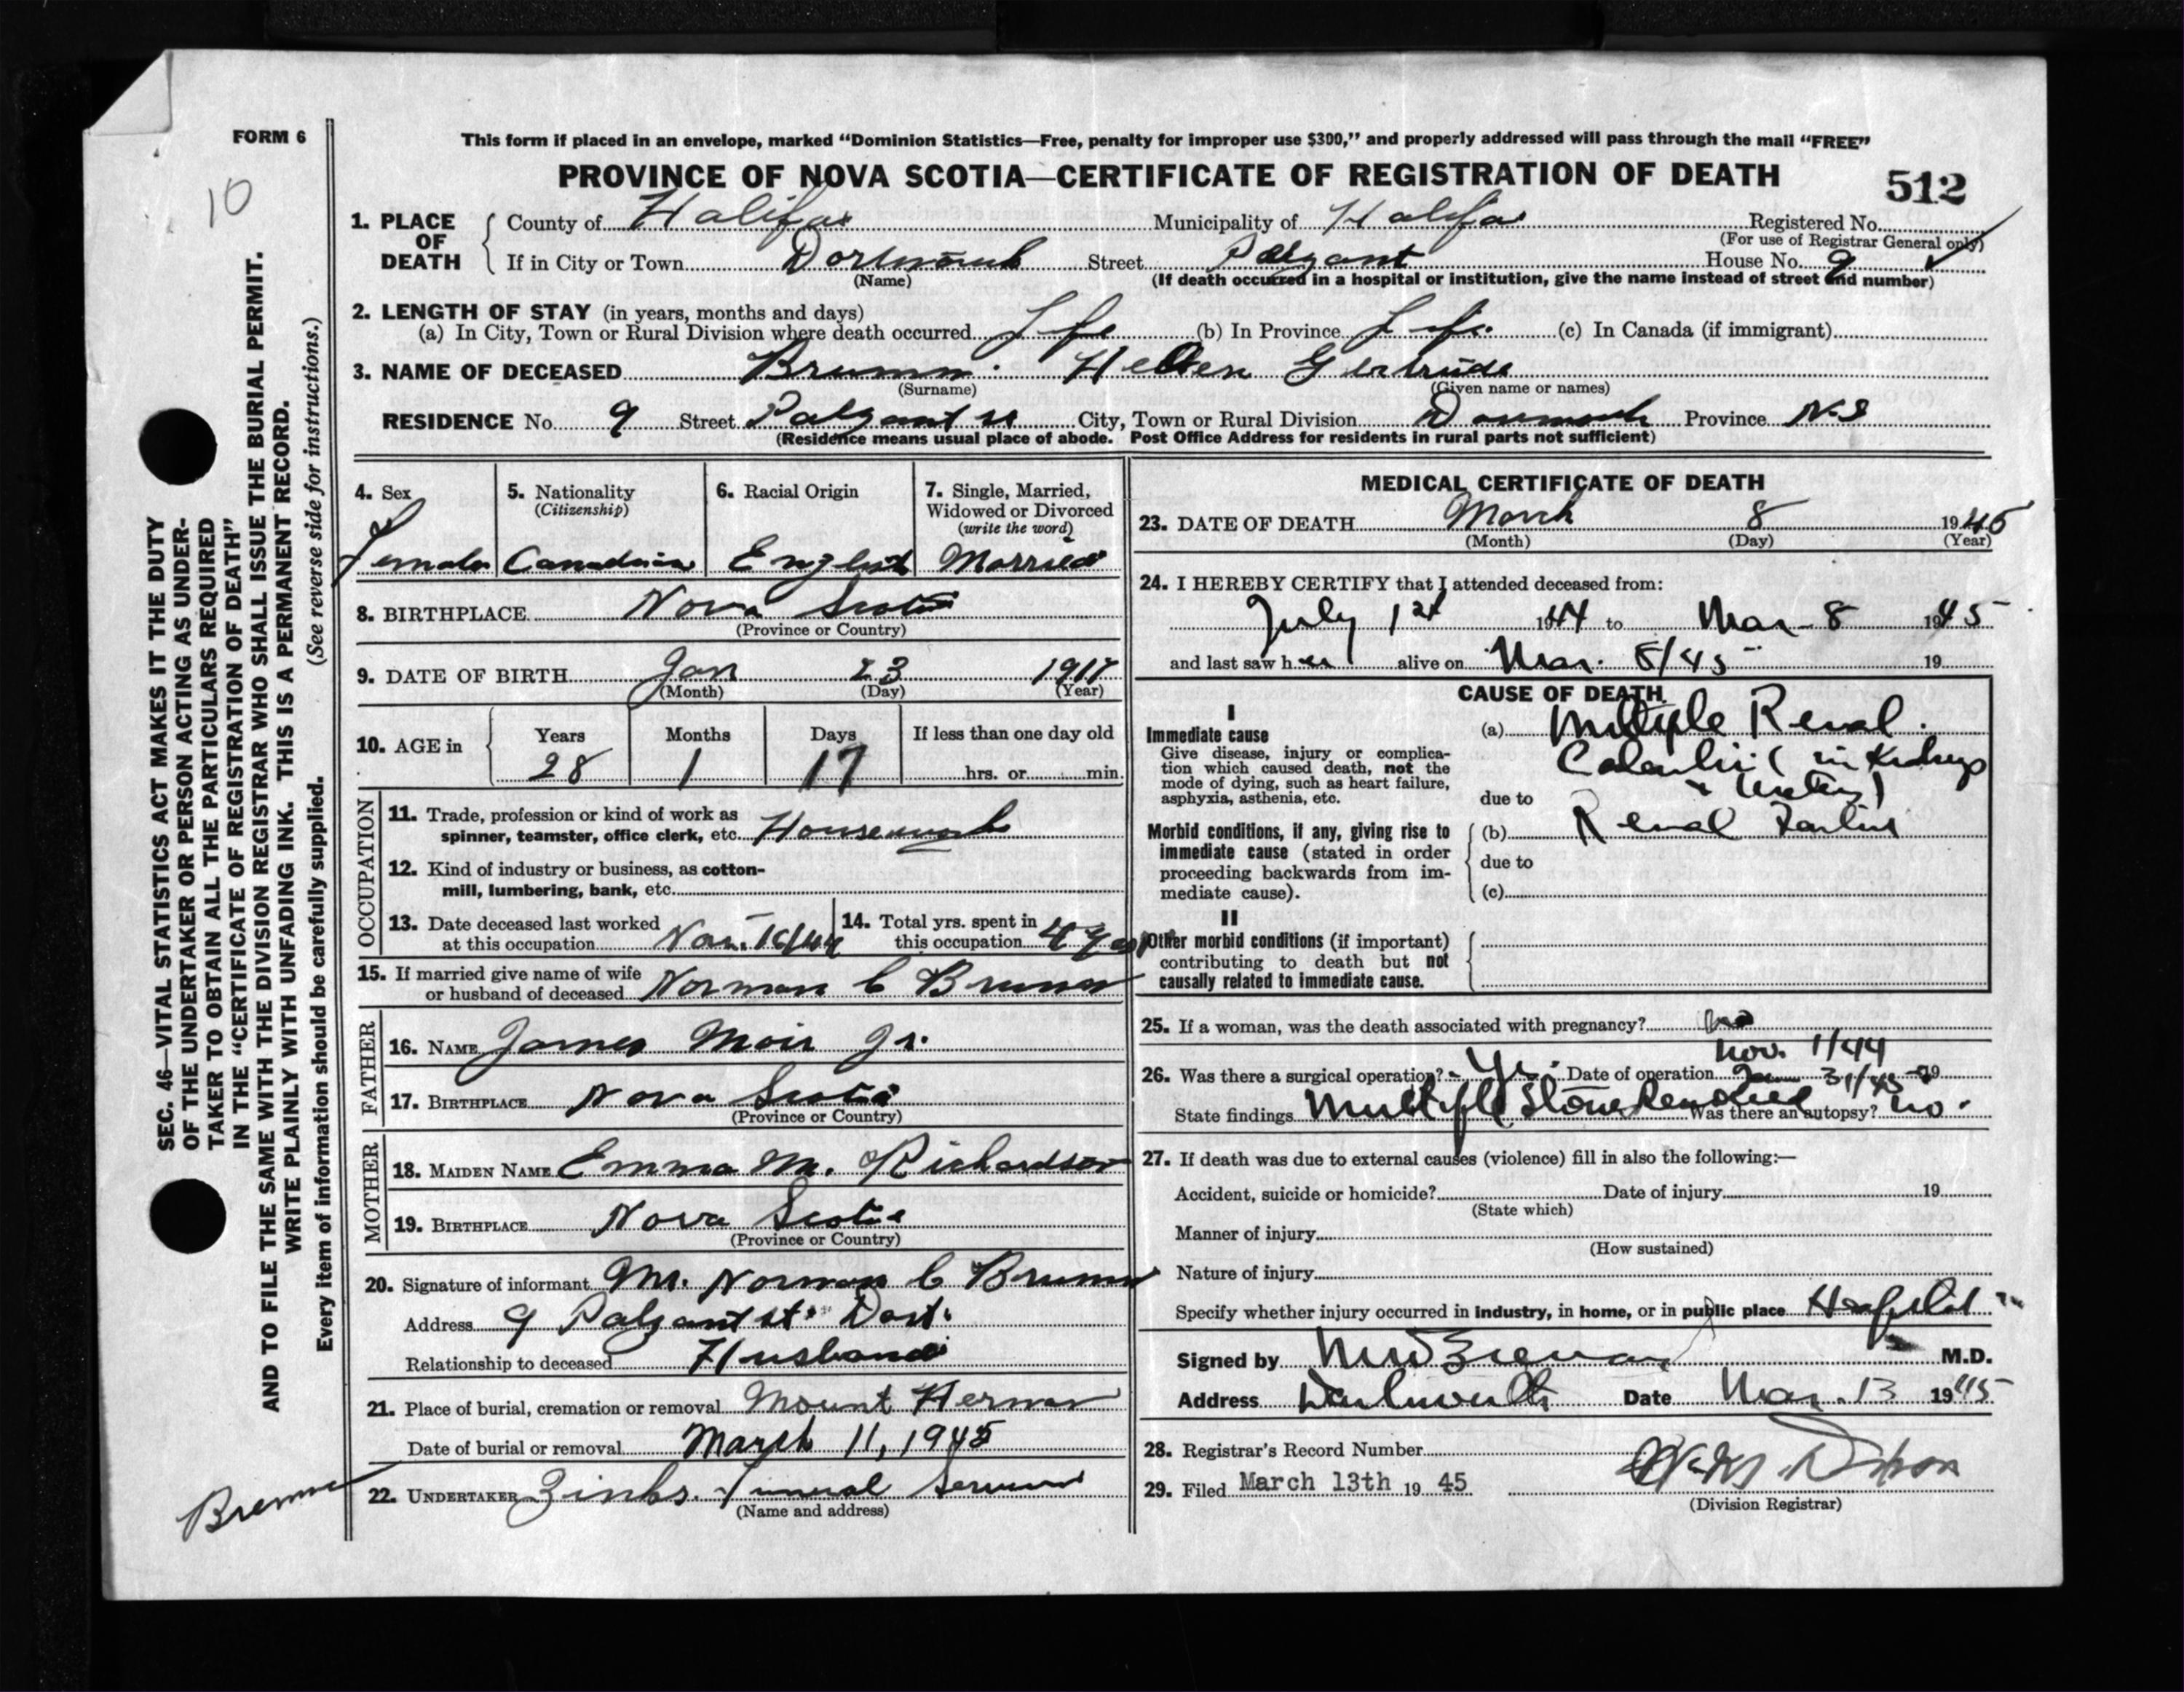 FORM 6
10
This form if placed in an envelope, marked “Dominion Statistics—Free, penalty for improper use $300,” and properly addressed will pass through the mail “FREE”
PROVINCE OF NOVA SCOTIA—CERTIFICATE OF REGISTRATION OF DEATH
512
1. PLACE OF DEATH { County of Halifax Municipality of Halifax Registered No.
(For use of Registrar General only)
If in City or Town Street House No. 9
(Name) (If death occurred in a hospital or institution, give the name instead of street and number)
2. LENGTH OF STAY (in years, months and days)
(a) In City, Town or Rural Division where death occurred Life (b) In Province Life. (c) In Canada (if immigrant)
3. NAME OF DECEASED Hellen Gertrude
(Surname) (Given name or names)
RESIDENCE No. 9 Street City, Town or Rural Division Province N-S
(Residence means usual place of abode. Post Office Address for residents in rural parts not sufficient)
4. Sex
Female
5. Nationality
(Citizenship)
Canadian
6. Racial Origin
English
7. Single, Married,
Widowed or Divorced
(write the word)
Married
8. BIRTHPLACE Nova Scotia
(Province or Country)
9. DATE OF BIRTH Jan 23 1917
(Month) (Day) (Year)
10. AGE in { Years Months Days If less than one day old
28 1 17 hrs. or min.
OCCUPATION
11. Trade, profession or kind of work as
spinner, teamster, office clerk, etc. Housework
12. Kind of industry or business, as cotton-
mill, lumbering, bank, etc.
13. Date deceased last worked
at this occupation
14. Total yrs. spent in
this occupation 4
15. If married give name of wife
or husband of deceased Norman C
FATHER
16. NAME James Moir Jr.
17. BIRTHPLACE Nova Scotia
(Province or Country)
MOTHER
18. MAIDEN NAME Emma M. Richardson
19. BIRTHPLACE Nova Scotia
(Province or Country)
20. Signature of informant Mr. Norman C
Address 9 st. Dart.
Relationship to deceased Husband
21. Place of burial, cremation or removal Mount Herman
Date of burial or removal March 11, 1945
22. UNDERTAKER Zinks. Funeral Service
(Name and address)
MEDICAL CERTIFICATE OF DEATH
23. DATE OF DEATH March 8 1945
(Month) (Day) (Year)
24. I HEREBY CERTIFY that I attended deceased from:
July 1st 1944 to Mar - 8 1945
and last saw her alive on Mar. 8/45 19
CAUSE OF DEATH
I
Immediate cause
Give disease, injury or complica-
tion which caused death, not the
mode of dying, such as heart failure,
asphyxia, asthenia, etc.
(a) Multiple Renal
Calculi (in Kidneys
due to
Morbid conditions, if any, giving rise to
immediate cause (stated in order
proceeding backwards from im-
mediate cause).
(b) Renal Failure
due to
(c)
II
Other morbid conditions (if important)
contributing to death but not
causally related to immediate cause.
25. If a woman, was the death associated with pregnancy? No
Nov. 1/44
26. Was there a surgical operation? Yes. Date of operation 31/45 19
State findings Multiple Stones Removed Was there an autopsy? no.
27. If death was due to external causes (violence) fill in also the following:—
Accident, suicide or homicide? Date of injury 19
(State which)
Manner of injury
(How sustained)
Nature of injury
Specify whether injury occurred in industry, in home, or in public place
Signed by M.D.
Address Dartmouth Date Mar. 13 1945
28. Registrar's Record Number
29. Filed March 13th 19 45
(Division Registrar)
SEC. 46—VITAL STATISTICS ACT MAKES IT THE DUTY
OF THE UNDERTAKER OR PERSON ACTING AS UNDER-
TAKER TO OBTAIN ALL THE PARTICULARS REQUIRED
IN THE “CERTIFICATE OF REGISTRATION OF DEATH”
AND TO FILE THE SAME WITH THE DIVISION REGISTRAR WHO SHALL ISSUE THE BURIAL PERMIT.
WRITE PLAINLY WITH UNFADING INK. THIS IS A PERMANENT RECORD.
Every item of information should be carefully supplied. (See reverse side for instructions.)